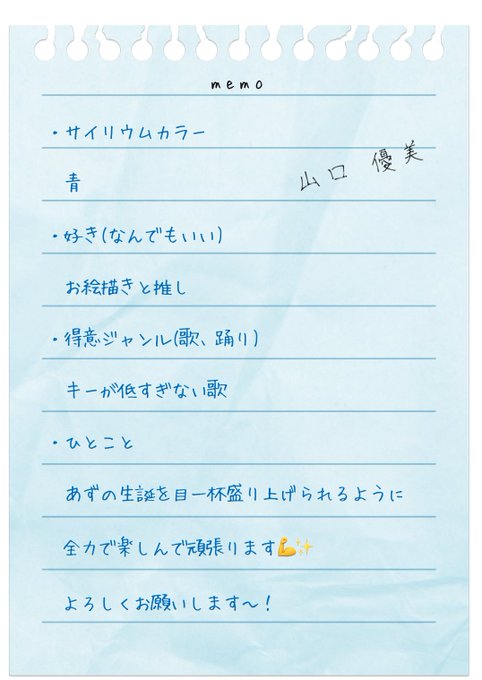 memo
・サイリウムカラー
山口 優美
青
・好き(なんでもいい)
お絵描きと推し
・得意ジャンル(歌、踊り)
キーが低すぎない歌
・ひとこと
あずの生誕を目一杯盛り上げられるように
全力で楽しんで頑張ります💪✨
よろしくお願いします〜！